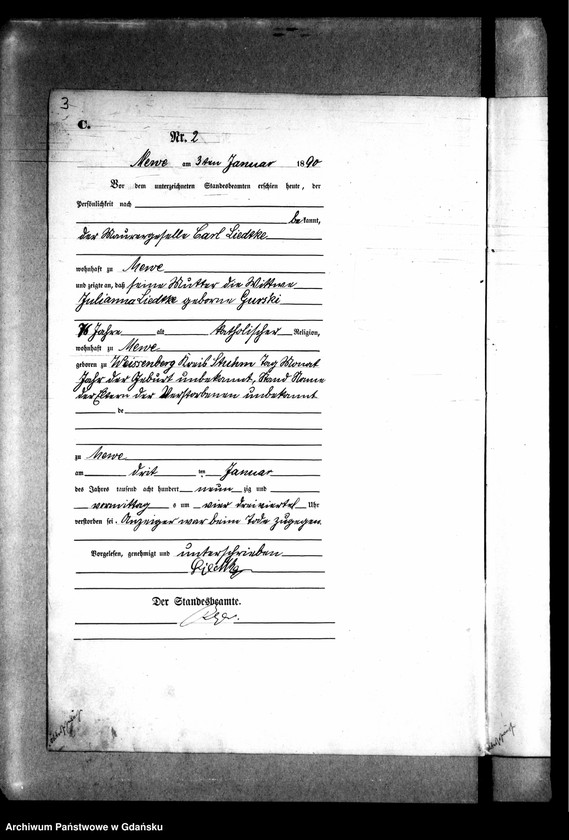 3
C.
Nr. 2
Mewe am 3ten Januar 1890
Vor dem unterzeichneten Standesbeamten erschien heute, der
Persönlichkeit nach
bekannt,
der Maurergeselle Carl Liedtke
wohnhaft zu Mewe
und zeigte an, daß seine Mutter die Wittwe
Julianna Liedtke geborne Gurski
76 Jahre alt katholischer Religion,
wohnhaft zu Mewe
geboren zu Weissenberg Kreis Stuhm Tag Monat
Jahr der Geburt unbekannt, Stand Name
der Eltern der Verstorbenen unbekannt
de
zu Mewe
am drit ten Januar
des Jahres tausend acht hundert neun zig und
vormittag s um vier dreiviertel Uhr
verstorben sei. Anzeiger war beim Tode zugegen.
Vorgelesen, genehmigt und unterschrieben
Liedtke
Der Standesbeamte.
Archiwum Państwowe w Gdańsku